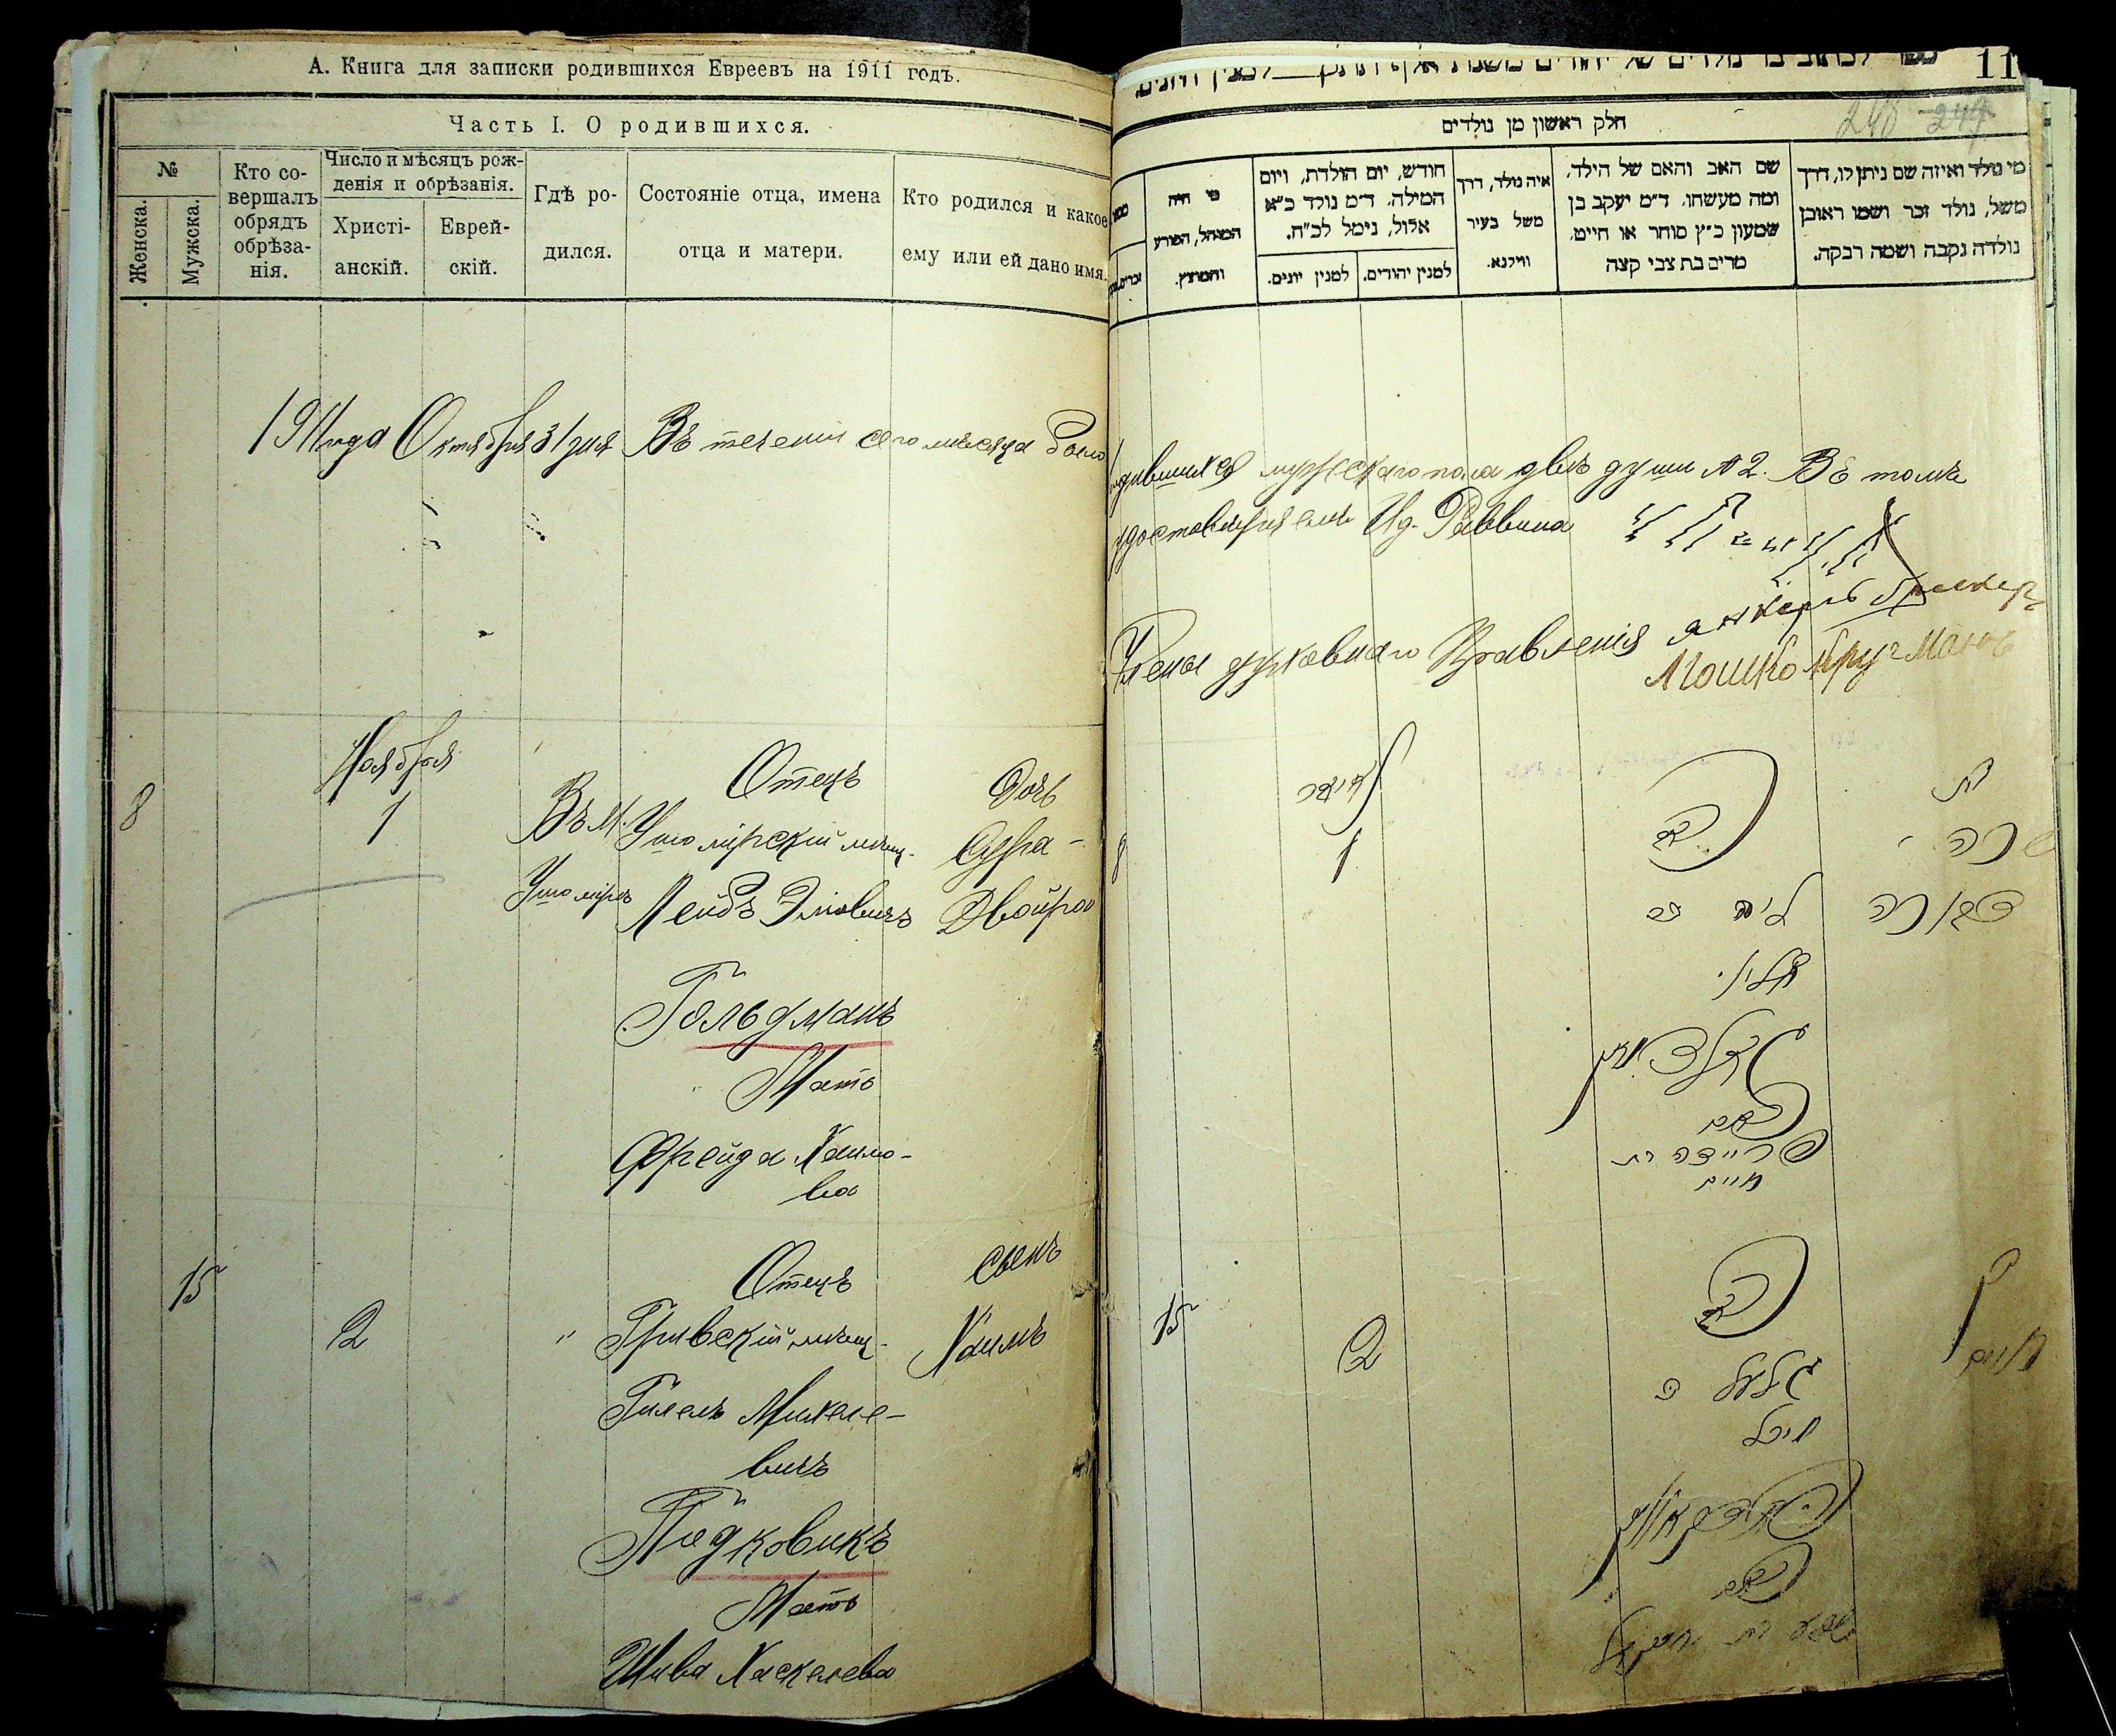 А. Книга для записки родившихся Евреевъ на 1911 годъ.
Часть I. О родившихся.
№
Женска.
Мужска.
Кто со-
вершалъ
обрядъ
обрѣза-
нія.
Число и мѣсяцъ рож-
денія и обрѣзанія.
Христі-
анскій.
Еврей-
скій.
Гдѣ ро-
дился.
Состояніе отца, имена
отца и матери.
Кто родился и какое
ему или ей дано имя.
1911 года Октября 31 дня Въ теченіи сего мѣсяца было
Ноября
8
1
Въ м.
Ушомірѣ
Отецъ
Ушомірскій мѣщ.
Лейбъ Эліовичъ
Гольдманъ
Мать
Фрейда Хаимо-
ва
Дочь
Сура-
Двойра
15
2
"
Отецъ
Гилель Михеле-
вичъ
Мать
Шива Хаскелева
сынъ
Хаимъ
11
248 247
חלק ראשון מן נולדים
מי היה
המוהל, הפורע
והמוצץ.
חודש, יום הולדת, ויום
המילה. ד״מ נולד כ״א
אלול, נימל לכ״ח.
למנין יונים.
למנין יהודים.
איה נולד, דרך
משל בעיר
ווילנא.
שם האב והאם של הילד,
ומה מעשהו. ד״מ יעקב בן
שמעון כ״ץ סוחר או חייט,
מרים בת צבי קצה
מי נולד ואיזה שם ניתן לו, דרך
משל, נולד זכר ושמו ראובן
נולדה נקבה ושמה רבקה.
родившихся мужескаго пола двѣ души № 2. Въ томъ
удостовѣряемъ Ид. Раввина
Члены духовнаго Правленія
Мошко Бругманъ
8
1
שרה
דבורה
האב
ליב ב
אליו
גאלדמאן
האם
פריידה בת
חיים
15
2
חיים
האב
הלל ב
מיכל
האם